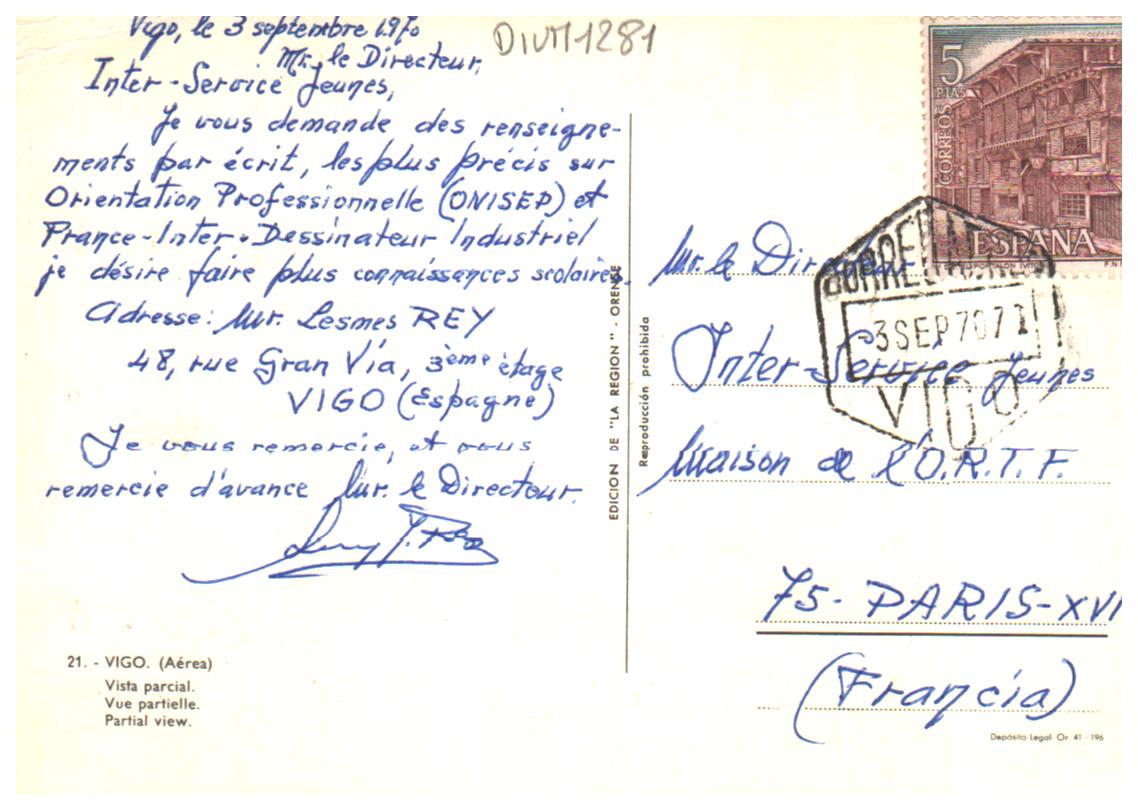 Vigo, le 3 septembre 1.970
DIVM1281
Mr. le Directeur,
Inter-Service Jeunes,
Je vous demande des renseigne-
ments par écrit, les plus précis sur
Orientation Professionnelle (ONISEP) et
France-Inter. Dessinateur Industriel
je désire faire plus connaissances scolaires.
Adresse: Mr. Lesmes REY
48, rue Gran Vía, 3ème étage
VIGO (Espagne)
Je vous remercie, et vous
remercie d'avance Mr. le Directeur.
21. - VIGO. (Aérea)
Vista parcial.
Vue partielle.
Partial view.
EDICION DE "LA REGION" - ORENSE
Reproducción prohibida
5
PTAS
CORREOS
ESPAÑA
3 SEP 70
VIGO
Mr. le Directeur
Inter-Service Jeunes
Maison de l'O.R.T.F.
75- PARIS-XVI
(Francia)
Depósito Legal- Or. 41 - 196